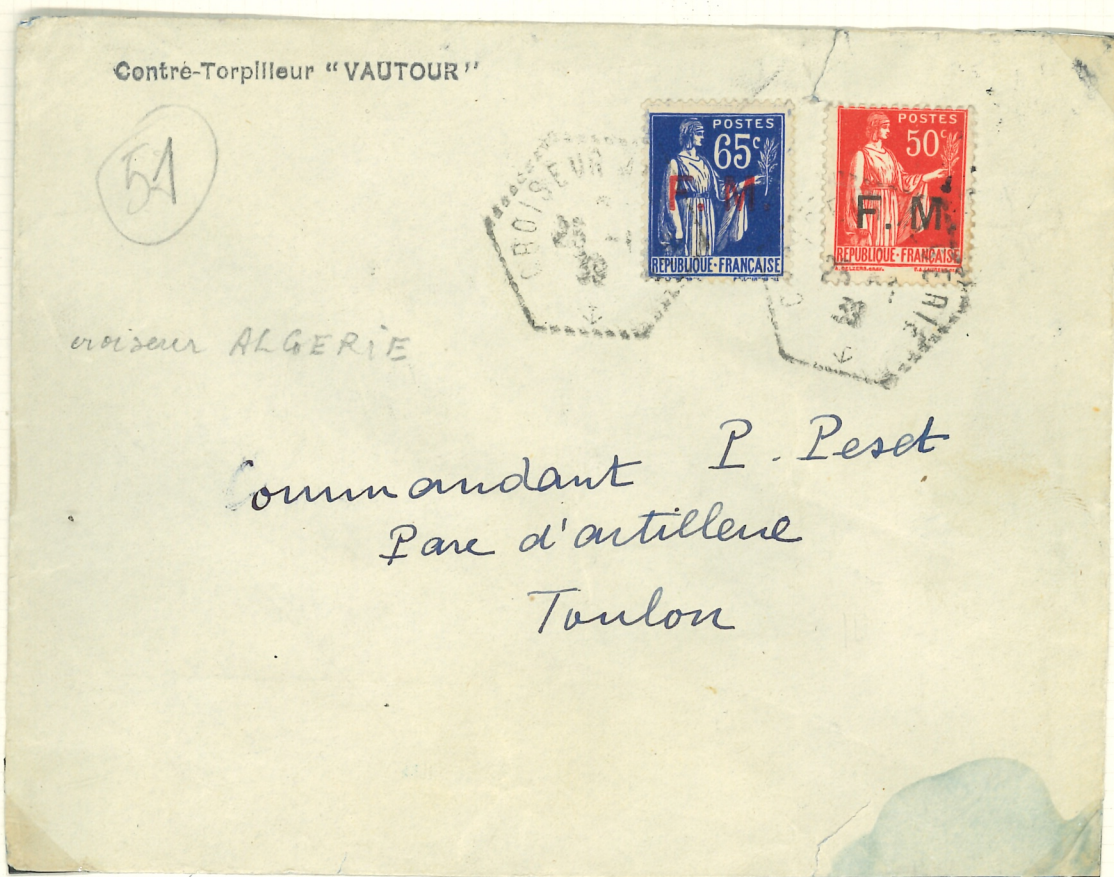 Contre-Torpilleur "VAUTOUR"
51
POSTES
65c
F. M.
REPUBLIQUE·FRANÇAISE
POSTES
50c
F. M.
REPUBLIQUE·FRANÇAISE
CROISEUR
croiseur ALGERIE
Commandant P. Peset
Parc d'artillerie
Toulon